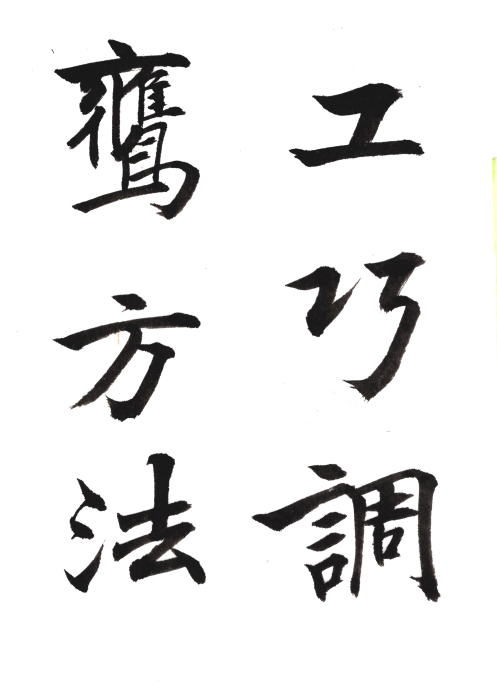 工巧調
鷹方法